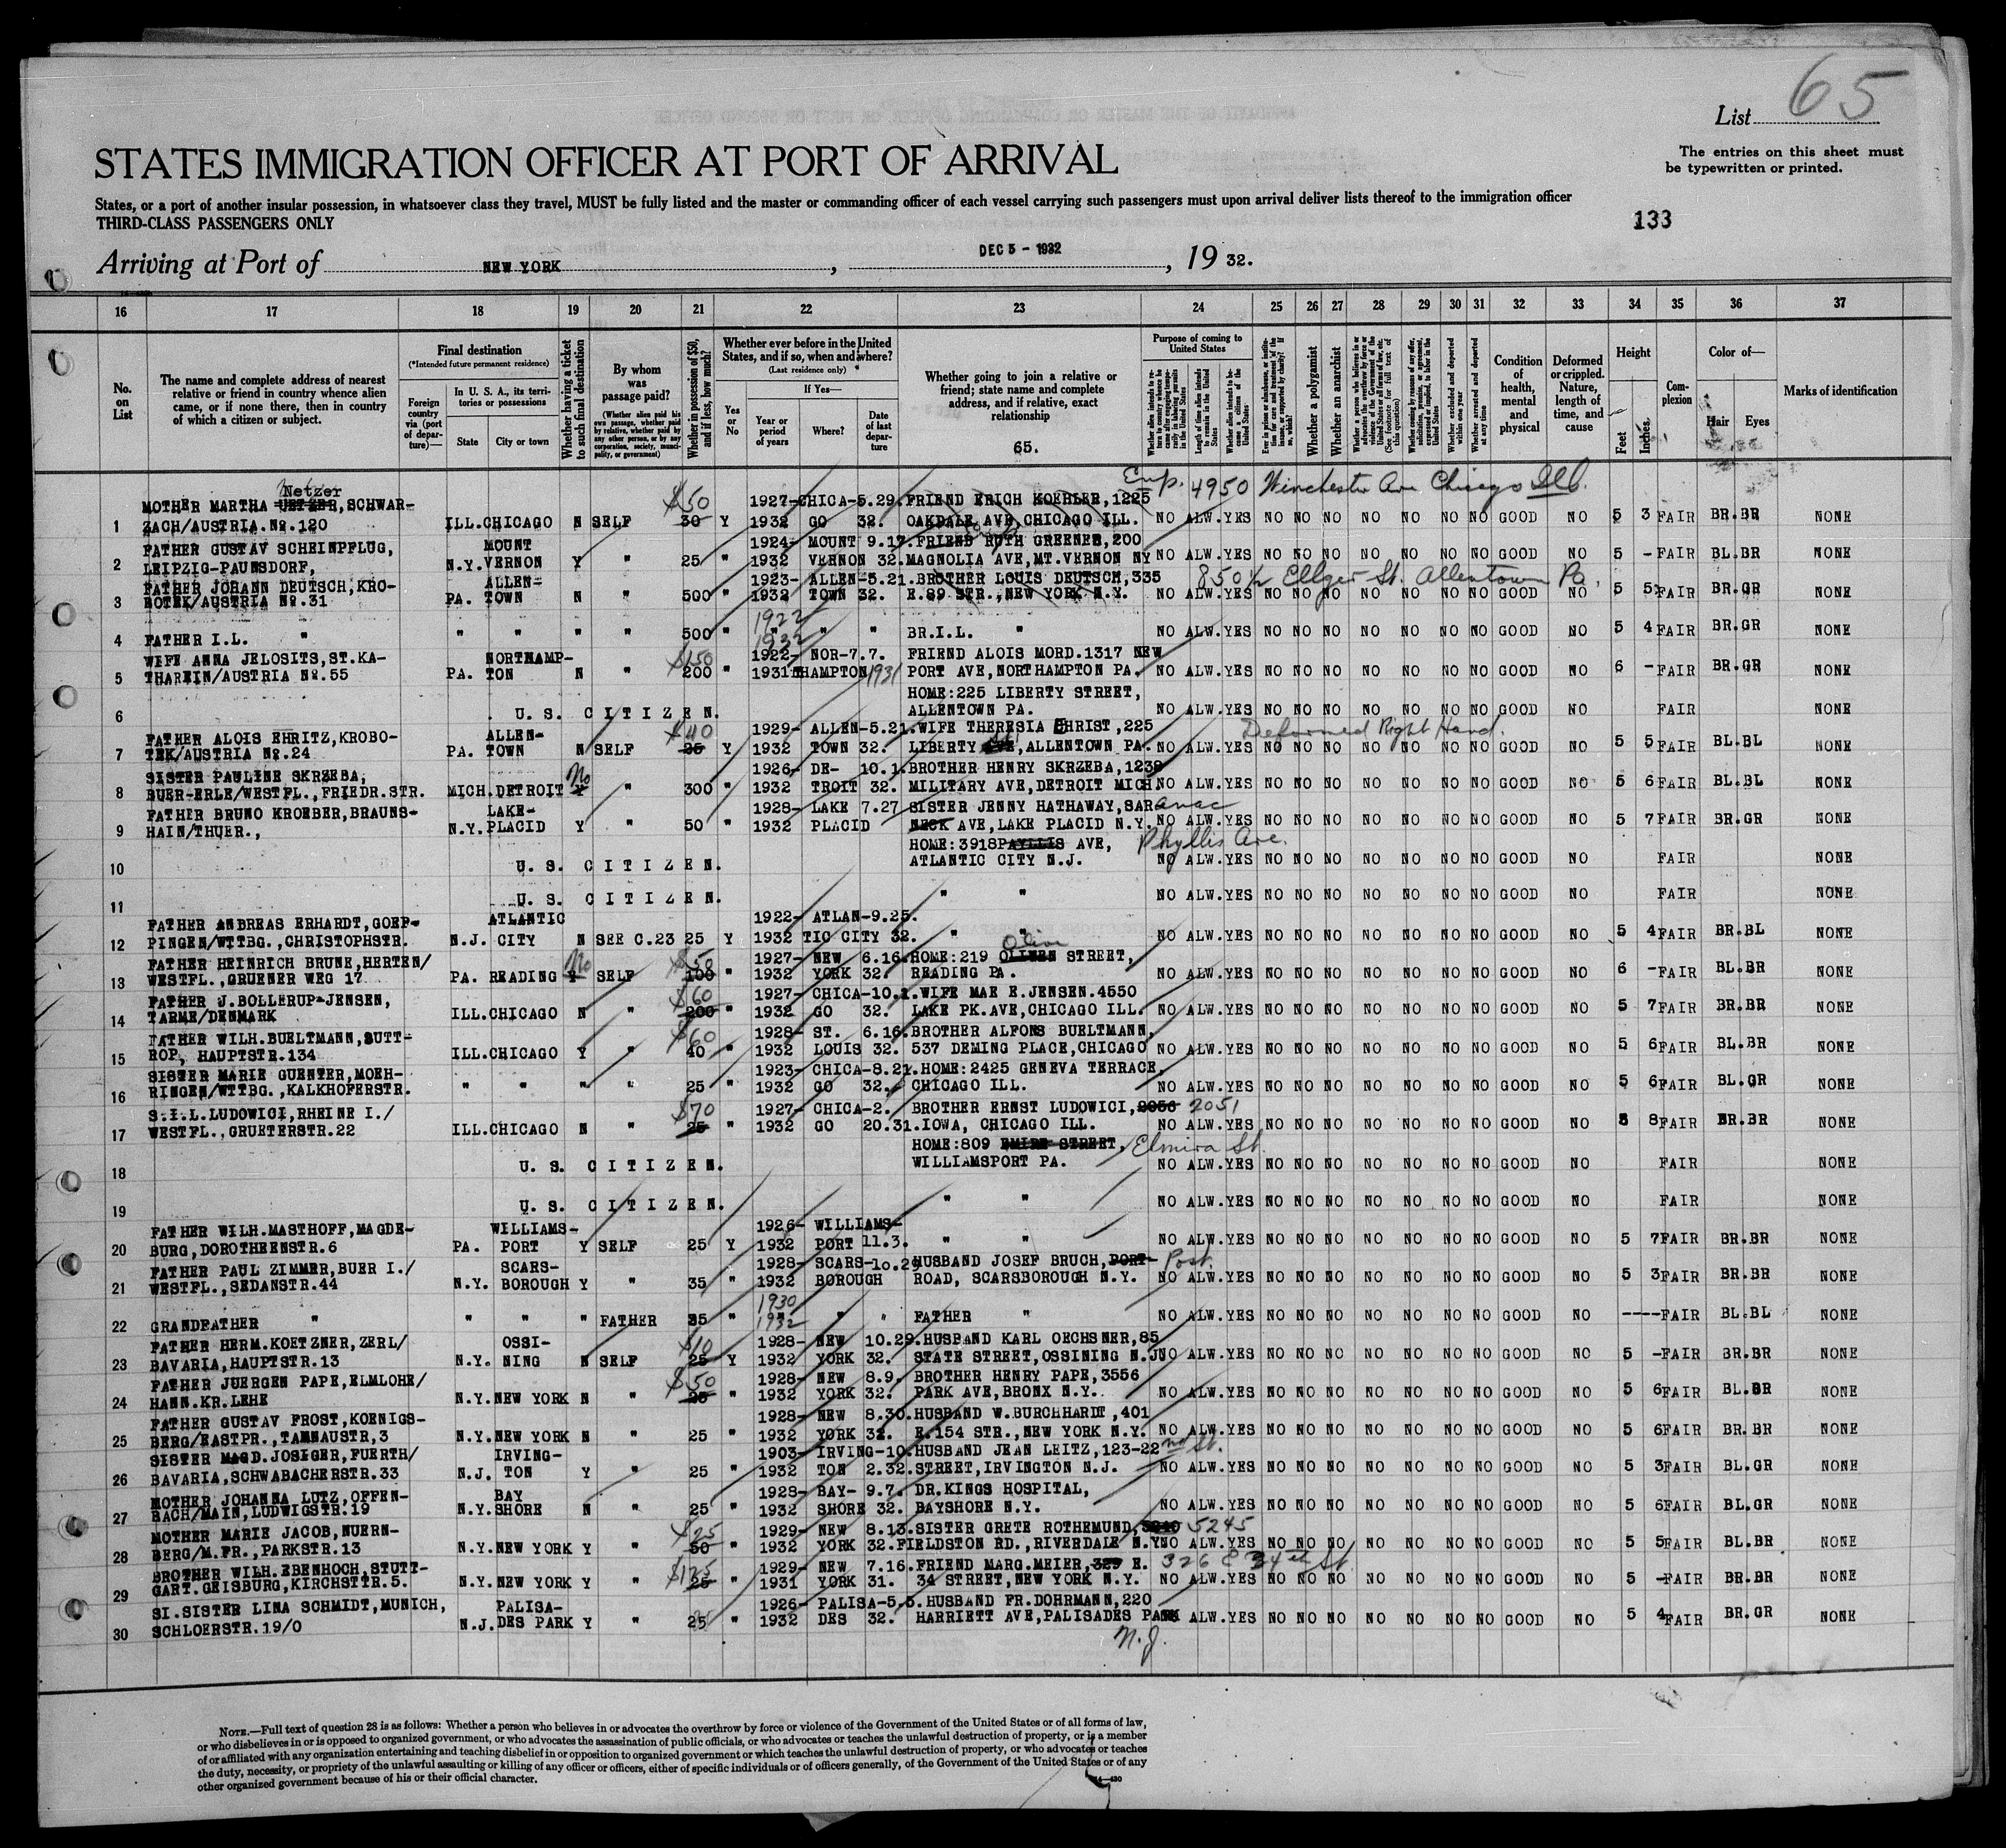 List 65
The entries on this sheet must
be typewritten or printed.
STATES IMMIGRATION OFFICER AT PORT OF ARRIVAL
States, or a port of another insular possession, in whatsoever class they travel, MUST be fully listed and the master or commanding officer of each vessel carrying such passengers must upon arrival deliver lists thereof to the immigration officer
THIRD-CLASS PASSENGERS ONLY
133
Arriving at Port of NEW YORK, DEC 5 - 1932, 19 32.
16 17 18 19 20 21 22 23 24 25 26 27 28 29 30 31 32 33 34 35 36 37
No. on List
The name and complete address of nearest relative or friend in country whence alien came, or if none there, then in country of which a citizen or subject.
Final destination
(*Intended future permanent residence)
Foreign country via (port of departure)—
In U. S. A., its territories or possessions
State
City or town
Whether having a ticket to such final destination
By whom was passage paid?
(Whether alien paid his own passage, whether paid by relative, whether paid by any other person, or by any corporation, society, municipality, or government)
Whether in possession of $50, and if less, how much?
Whether ever before in the United States, and if so, when and where?
(Last residence only)
Yes or No
If Yes—
Year or period of years
Where?
Date of last departure
Whether going to join a relative or friend; state name and complete address, and if relative, exact relationship
65.
Purpose of coming to United States
Whether a polygamist
Whether an anarchist
Condition of health, mental and physical
Deformed or crippled. Nature, length of time, and cause
Height
Feet
Inches
Complexion
Color of—
Hair
Eyes
Marks of identification
Emp. 4950 Winchester Ave Chicago Ill.
Netzer $50
MOTHER MARTHA UETZER, SCHWAR- 1927- CHICA- 5.29. FRIEND ERICH KOEHLER, 1225
1 ZACH/AUSTRIA No. 120 ILL. CHICAGO N SELF 30 Y 1932 GO 32. OAKDALE AVE, CHICAGO ILL. NO ALW. YES NO NO NO NO NO NO NO GOOD NO 5 3 FAIR BR. BR NONE
FATHER GUSTAV SCHEINPFLUG, MOUNT 1924- MOUNT 9.17. FRIEND RUTH GREENER, 200
2 LEIPZIG-PAUNSDORF, N.Y. VERNON Y " 25 " 1932 VERNON 32. MAGNOLIA AVE, MT. VERNON NY NO ALW. YES NO NO NO NO NO NO NO GOOD NO 5 - FAIR BL. BR NONE
FATHER JOHANN DEUTSCH, KRO- ALLEN- 1923- ALLEN- 5.21. BROTHER LOUIS DEUTSCH, 335 850½ Ellger St. Allentown Pa.
3 BOTEK/AUSTRIA No. 31 PA. TOWN N " 500 " 1932 TOWN 32. E. 89 STR., NEW YORK N.Y. NO ALW. YES NO NO NO NO NO NO NO GOOD NO 5 5 FAIR BR. GR NONE
1922
4 FATHER I.L. " " " " " 500 " 1932 " " BR. I.L. " NO ALW. YES NO NO NO NO NO NO NO GOOD NO 5 4 FAIR BR. GR NONE
WIFE ANNA JELOSITS, ST. KA- NORTHAMP- $150 1922- NOR- 7.7. FRIEND ALOIS MORD. 1317 NEW
5 THAREIN/AUSTRIA No. 55 PA. TON N " 200 " 1931 THAMPTON 1931 PORT AVE, NORTHAMPTON PA. NO ALW. YES NO NO NO NO NO NO NO GOOD NO 6 - FAIR BR. GR NONE
HOME: 225 LIBERTY STREET,
6 U. S. CITIZEN. ALLENTOWN PA. NO ALW. YES NO NO NO NO NO NO NO GOOD NO FAIR NONE
FATHER ALOIS EHRITZ, KROBO- ALLEN- $40 1929- ALLEN- 5.21. WIFE THERESIA CHRIST, 225 Deformed Right Hand.
7 TEK/AUSTRIA No. 24 PA. TOWN N SELF 25 Y 1932 TOWN 32. LIBERTY St., ALLENTOWN PA. NO ALW. YES NO NO NO NO NO NO NO GOOD NO 5 5 FAIR BL. BL NONE
SISTER PAULINE SKRZEBA, No 1926- DE- 10.1. BROTHER HENRY SKRZEBA, 1239
8 BUER-ERLE/WESTFL., FRIEDR. STR. MICH. DETROIT Y " 300 " 1932 TROIT 32. MILITARY AVE, DETROIT MICH NO ALW. YES NO NO NO NO NO NO NO GOOD NO 5 6 FAIR BL. BL NONE
FATHER BRUNO KROEBER, BRAUNS- LAKE- 1928- LAKE 7.27 SISTER JENNY HATHAWAY, SARanac
9 HAIN/THUER., N.Y. PLACID Y " 50 " 1932 PLACID NECK AVE, LAKE PLACID N.Y. NO ALW. YES NO NO NO NO NO NO NO GOOD NO 5 7 FAIR BR. GR NONE
HOME: 3918 PAYLLIS AVE, Phyllis Ave.
10 U. S. CITIZEN. ATLANTIC CITY N.J. NO ALW. YES NO NO NO NO NO NO NO GOOD NO FAIR NONE
11 U. S. CITIZEN. " " NO ALW. YES NO NO NO NO NO NO NO GOOD NO FAIR NONE
FATHER ANDREAS ERHARDT, GOEP- ATLANTIC 1922- ATLAN- 9.25.
12 PINGEN/WTTBG., CHRISTOPHSTR. N.J. CITY N SEE C.23 25 Y 1932 TIC CITY 32. " " NO ALW. YES NO NO NO NO NO NO NO GOOD NO 5 4 FAIR BR. BL NONE
FATHER HEINRICH BRUNE, HERTEN/ No $50 1927- NEW 6.16. HOME: 219 Olive STREET,
13 WESTFL., GRUENER WEG 17 PA. READING Y SELF 100 " 1932 YORK 32. READING PA. NO ALW. YES NO NO NO NO NO NO NO GOOD NO 6 - FAIR BL. BR NONE
FATHER J. BOLLERUP-JENSEN, $60 1927- CHICA- 10.1. WIFE MAE E. JENSEN. 4550
14 TARME/DENMARK ILL. CHICAGO N " 200 " 1932 GO 32. LAKE PK. AVE, CHICAGO ILL. NO ALW. YES NO NO NO NO NO NO NO GOOD NO 5 7 FAIR BR. BR NONE
FATHER WILH. BUELTMANN, SUTT- $60 1928- ST. 6.16. BROTHER ALFONS BUELTMANN,
15 ROP, HAUPTSTR. 134 ILL. CHICAGO Y " 40 " 1932 LOUIS 32. 537 DEMING PLACE, CHICAGO NO ALW. YES NO NO NO NO NO NO NO GOOD NO 5 6 FAIR BL. BR NONE
SISTER MARIE GUENTER, MOEH- 1923- CHICA- 8.21. HOME: 2425 GENEVA TERRACE,
16 RINGEN/WTTBG., KALKHOFERSTR. " " " " 25 " 1932 GO 32. CHICAGO ILL. NO ALW. YES NO NO NO NO NO NO NO GOOD NO 5 6 FAIR BL. GR NONE
S.I.L. LUDOWICI, RHEINE I./ $70 1927- CHICA- 2. BROTHER ERNST LUDOWICI, 2056 2051
17 WESTFL., GRUETERSTR. 22 ILL. CHICAGO N " 25 " 1932 GO 20.31. IOWA, CHICAGO ILL. NO ALW. YES NO NO NO NO NO NO NO GOOD NO 5 8 FAIR BR. BR NONE
HOME: 809 Elmira St.
18 U. S. CITIZEN. WILLIAMSPORT PA. NO ALW. YES NO NO NO NO NO NO NO GOOD NO FAIR NONE
19 U. S. CITIZEN. " " NO ALW. YES NO NO NO NO NO NO NO GOOD NO FAIR NONE
FATHER WILH. MASTHOFF, MAGDE- WILLIAMS- 1926- WILLIAMS-
20 BURG, DOROTHEENSTR. 6 PA. PORT Y SELF 25 Y 1932 PORT 11.3. " " NO ALW. YES NO NO NO NO NO NO NO GOOD NO 5 7 FAIR BR. BR NONE
FATHER PAUL ZIMMER, BUER I./ SCARS- 1928- SCARS- 10.29 HUSBAND JOSEF BRUCH, PORT- Post.
21 WESTFL., SEDANSTR. 44 N.Y. BOROUGH Y " 35 " 1932 BOROUGH ROAD, SCARSBOROUGH N.Y. NO ALW. YES NO NO NO NO NO NO NO GOOD NO 5 3 FAIR BR. BR NONE
1930
22 GRANDFATHER " " " " FATHER 35 " 1932 " " FATHER " NO ALW. YES NO NO NO NO NO NO NO GOOD NO ---- FAIR BL. BL NONE
FATHER HERM. KOETZNER, ZERL/ OSSI- $10 1928- NEW 10.29. HUSBAND KARL OECHSNER, 85
23 BAVARIA, HAUPTSTR. 13 N.Y. NING N SELF 25 Y 1932 YORK 32. STATE STREET, OSSINING N.J NO ALW. YES NO NO NO NO NO NO NO GOOD NO 5 - FAIR BR. BR NONE
FATHER JUERGEN PAPE, ELMLOHE/ $50 1928- NEW 8.9. BROTHER HENRY PAPE, 3556
24 HANN. KR. LEHE N.Y. NEW YORK N " 25 " 1932 YORK 32. PARK AVE, BRONX N.Y. NO ALW. YES NO NO NO NO NO NO NO GOOD NO 5 6 FAIR BL. BR NONE
FATHER GUSTAV FROST, KOENIGS- 1928- NEW 8.30. HUSBAND W. BURCHHARDT, 401
25 BERG/EASTPR., TAMNAUSTR, 3 N.Y. NEW YORK N " 25 " 1932 YORK 32. E. 154 STR., NEW YORK N.Y. NO ALW. YES NO NO NO NO NO NO NO GOOD NO 5 6 FAIR BR. BR NONE
SISTER MAGD. JOSIGER, FUERTH/ IRVING- 1903- IRVING- 10. HUSBAND JEAN LEITZ, 123-22 nd St.
26 BAVARIA, SCHWABACHERSTR. 33 N.J. TON Y " 25 " 1932 TON 2.32. STREET, IRVINGTON N.J. NO ALW. YES NO NO NO NO NO NO NO GOOD NO 5 3 FAIR BL. GR NONE
MOTHER JOHANNA LUTZ, OFFEN- BAY 1928- BAY- 9.7. DR. KINGS HOSPITAL,
27 BACH/MAIN, LUDWIGSTR. 19 N.Y. SHORE N " 25 " 1932 SHORE 32. BAYSHORE N.Y. NO ALW. YES NO NO NO NO NO NO NO GOOD NO 5 6 FAIR BL. GR NONE
MOTHER MARIE JACOB, NUERN- $25 1929- NEW 8.13. SISTER GRETE ROTHEMUND, 5245
28 BERG/M. FR., PARKSTR. 13 N.Y. NEW YORK Y " 50 " 1932 YORK 32. FIELDSTON RD., RIVERDALE N.Y NO ALW. YES NO NO NO NO NO NO NO GOOD NO 5 5 FAIR BL. BR NONE
BROTHER WILH. EBENHOCH, STUTT- $125 1929- NEW 7.16. FRIEND MARG. MEIER, 329 E. 326 E 34th St
29 GART. GEISBURG, KIRCHSTTR. 5. N.Y. NEW YORK Y " 25 " 1931 YORK 31. 34 STREET, NEW YORK N.Y. NO ALW. YES NO NO NO NO NO NO NO GOOD NO 5 - FAIR BR. BR NONE
SI. SISTER LINA SCHMIDT, MUNICH, PALISA- 1926- PALISA- 5.5. HUSBAND FR. DOHRMANN, 220
30 SCHLOERSTR. 19/0 N.J. DES PARK Y " 25 " 1932 DES 32. HARRIETT AVE, PALISADES PARK NO ALW. YES NO NO NO NO NO NO NO GOOD NO 5 4 FAIR BR. GR NONE
N.J.
NOTE.—Full text of question 28 is as follows: Whether a person who believes in or advocates the overthrow by force or violence of the Government of the United States or of all forms of law,
or who disbelieves in or is opposed to organized government, or who advocates the assassination of public officials, or who advocates or teaches the unlawful destruction of property, or is a member
of or affiliated with any organization entertaining and teaching disbelief in or opposition to organized government or which teaches the unlawful destruction of property, or who advocates or teaches
the duty, necessity, or propriety of the unlawful assaulting or killing of any officer or officers, either of specific individuals or of officers generally, of the Government of the United States or of any
other organized government because of his or their official character.